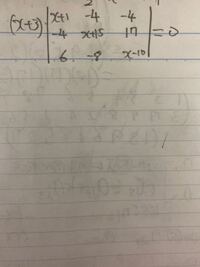 (x+3) | x+1 -4 -4 | = 0
| -4 x+15 17 |
| 6 -8 x-10 |